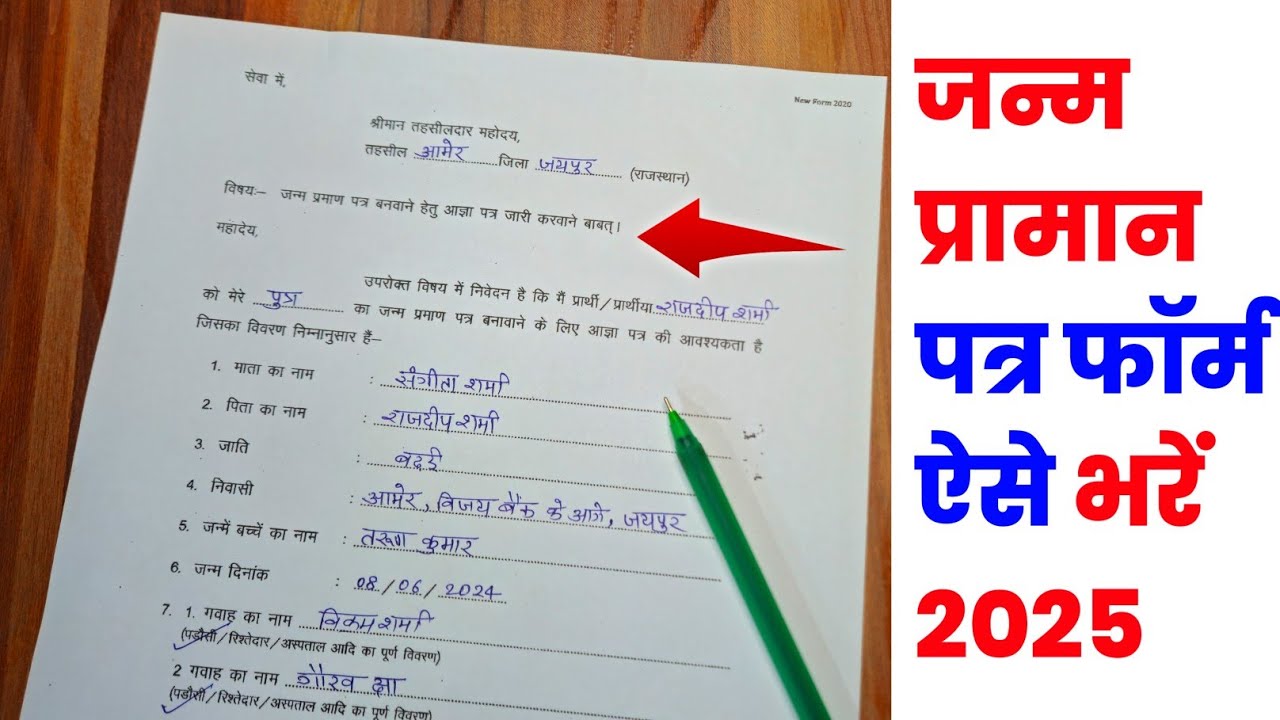 New Form 2020
सेवा में,
श्रीमान तहसीलदार महोदय,
तहसील आमेर जिला जयपुर (राजस्थान)
विषयः- जन्म प्रमाण पत्र बनवाने हेतु आज्ञा पत्र जारी करवाने बाबत्।
महादेय,
उपरोक्त विषय में निवेदन है कि मैं प्रार्थी/प्रार्थीया राजदीप शर्मा
को मेरे पुत्र का जन्म प्रमाण पत्र बनावाने के लिए आज्ञा पत्र की आवश्यकता है
जिसका विवरण निम्नानुसार हैं–
1. माता का नाम : संगीता शर्मा
2. पिता का नाम : राजदीप शर्मा
3. जाति :
4. निवासी : आमेर, विजय बैंक के आगे, जयपुर
5. जन्में बच्चें का नाम : तरूण कुमार
6. जन्म दिनांक : 08/06/2024
7. 1. गवाह का नाम विक्रम शर्मा
(पडौसी/रिश्तेदार/अस्पताल आदि का पूर्ण विवरण)
2 गवाह का नाम गौरव झा
(पडौसी/रिश्तेदार/अस्पताल आदि का पूर्ण विवरण)
जन्म
प्रामान
पत्र फॉर्म
ऐसे भरें
2025